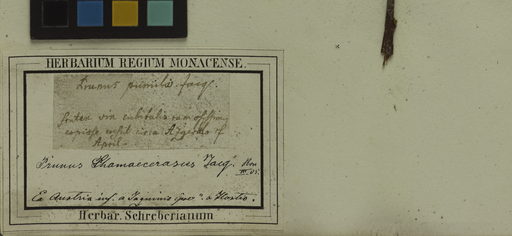 HERBARIUM REGIUM MONACENSE.
Prunus pumila Jacq.
frutex vix cubitalis ramosissimus
copiose circa
April.
Prunus Chamaecerasus Jacq.
Ex Austria inf. a Jacquinio a Hostio.
Herbar. Schreberianum